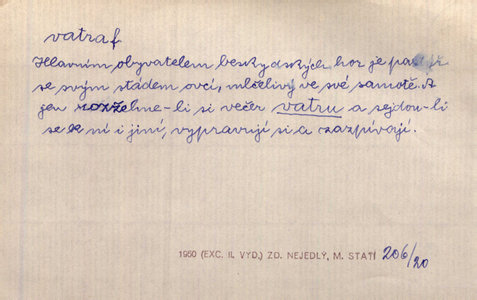 vatra f.
Hlavním obyvatelem beskydských hor je pastýř
se svým stádem ovcí, mlčelivý ve své samotě. A
jen rozžehne-li si večer vatru a sejdou-li
se s ní i jiní, vypravují si a zazpívají.
1950 (EXC. II. VYD.) ZD. NEJEDLÝ, M. STATÍ 206/20